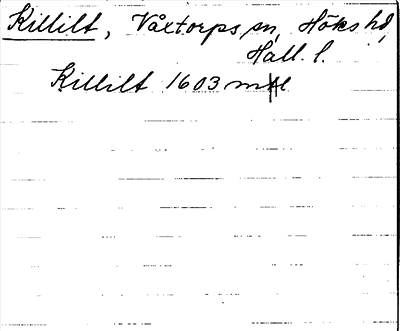 Killilt, Våxtorps sn, Höks hd,
Hall. l.
Killilt 1603 mtl